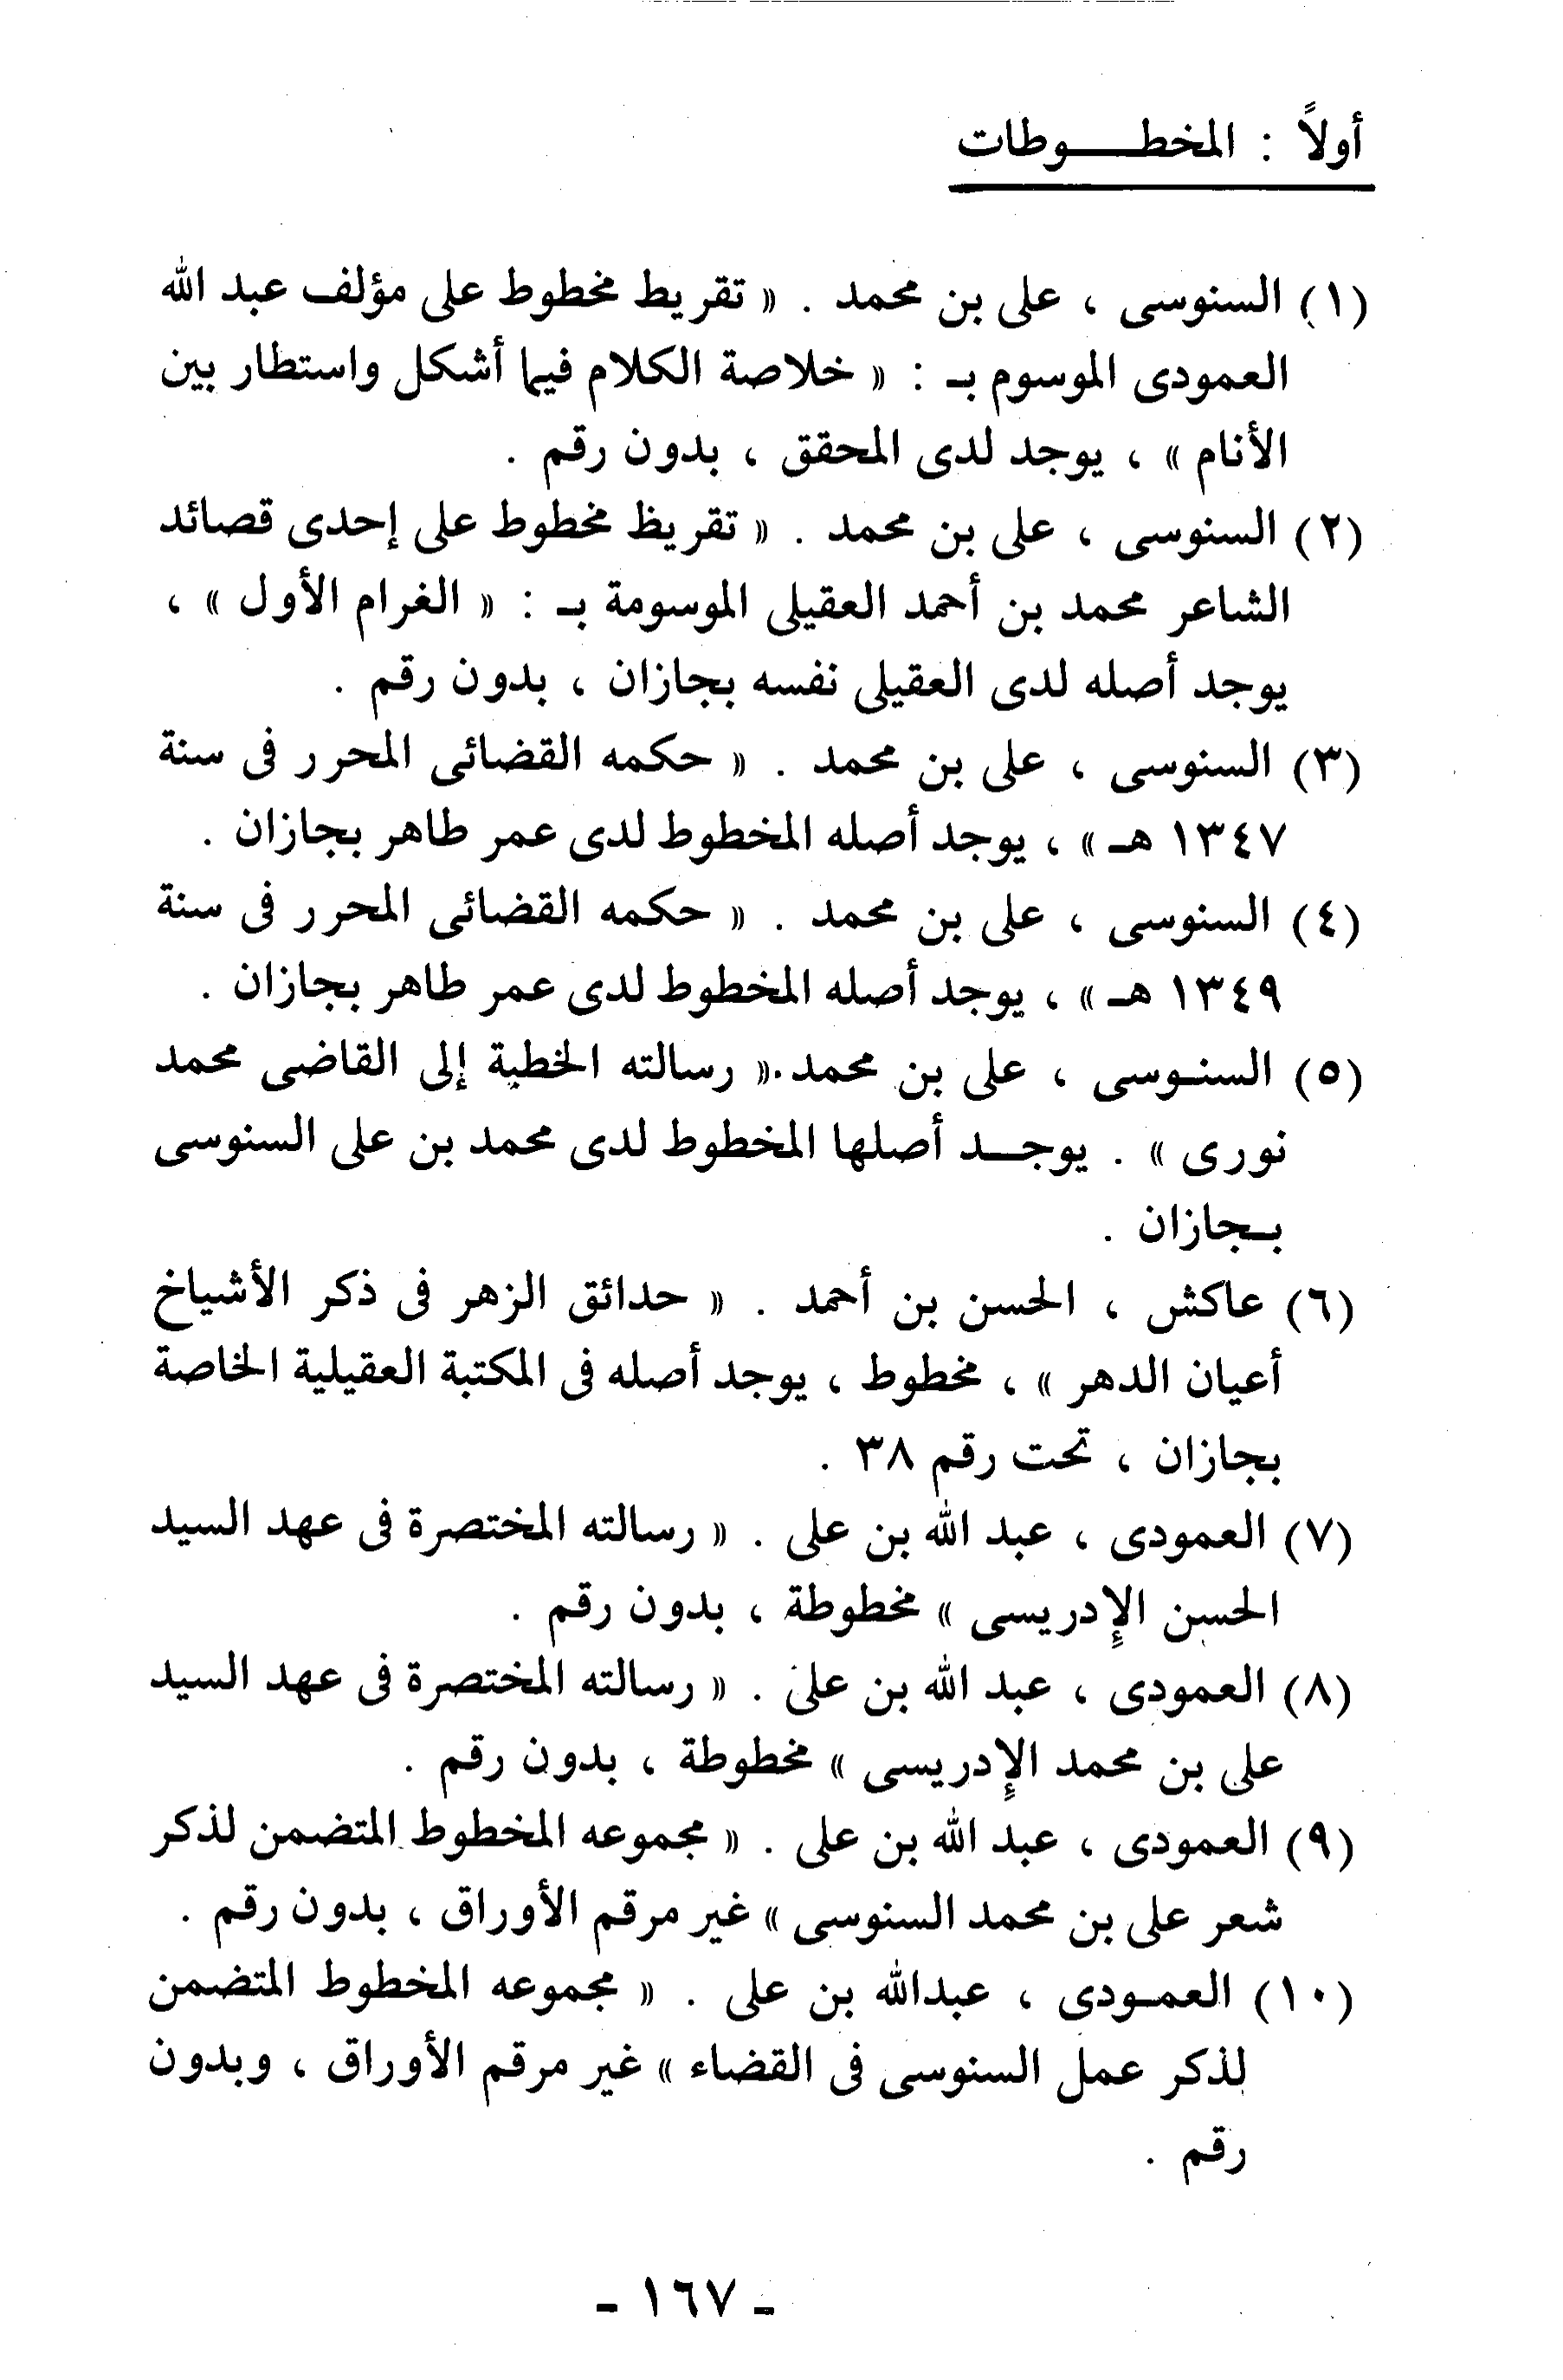 أولاً : المخطوطات
(١) السنوسى ، على بن محمد . « تقريط مخطوط على مؤلف عبد الله
العمودى الموسوم بـ : « خلاصة الكلام فيما أشكل واستطار بين
الأنام » ، يوجد لدى المحقق ، بدون رقم .
(٢) السنوسى ، على بن محمد . « تقريظ مخطوط على إحدى قصائد
الشاعر محمد بن أحمد العقيلى الموسومة بـ : « الغرام الأول » ،
يوجد أصله لدى العقيلى نفسه بجازان ، بدون رقم .
(٣) السنوسى ، على بن محمد . « حكمه القضائى المحرر فى سنة
١٣٤٧ هـ » ، يوجد أصله المخطوط لدى عمر طاهر بجازان .
(٤) السنوسى ، على بن محمد . « حكمه القضائى المحرر فى سنة
١٣٤٩ هـ » ، يوجد أصله المخطوط لدى عمر طاهر بجازان .
(٥) السنوسى ، على بن محمد . « رسالته الخطية إلى القاضى محمد
نورى » . يوجد أصلها المخطوط لدى محمد بن على السنوسى
بجازان .
(٦) عاكش ، الحسن بن أحمد . « حدائق الزهر فى ذكر الأشياخ
أعيان الدهر » ، مخطوط ، يوجد أصله فى المكتبة العقيلية الخاصة
بجازان ، تحت رقم ٣٨ .
(٧) العمودى ، عبد الله بن على . « رسالته المختصرة فى عهد السيد
الحسن الإدريسى » مخطوطة ، بدون رقم .
(٨) العمودى ، عبد الله بن على . « رسالته المختصرة فى عهد السيد
على بن محمد الإدريسى » مخطوطة ، بدون رقم .
(٩) العمودى ، عبد الله بن على . « مجموعه المخطوط المتضمن لذكر
شعر على بن محمد السنوسى » غير مرقم الأوراق ، بدون رقم .
(١٠) العمودى ، عبدالله بن على . « مجموعه المخطوط المتضمن
لذكر عمل السنوسى فى القضاء » غير مرقم الأوراق ، وبدون
رقم .
- ١٦٧ -